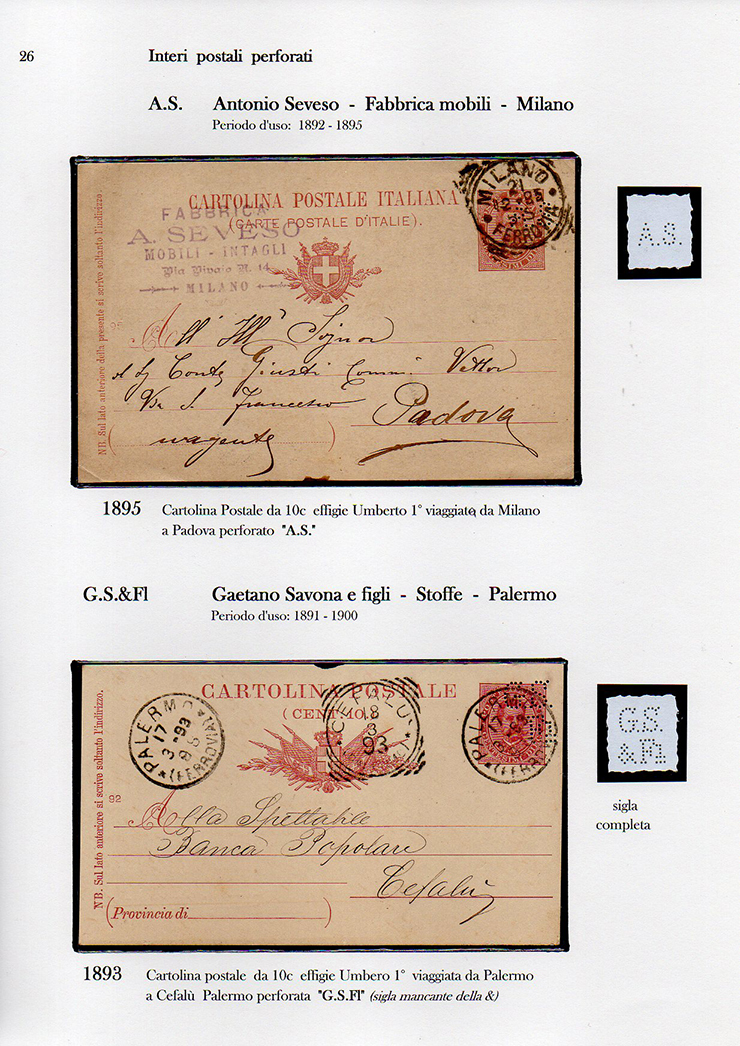 26
Interi postali perforati
A.S. Antonio Seveso - Fabbrica mobili - Milano
Periodo d'uso: 1892 - 1895
CARTOLINA POSTALE ITALIANA
(CARTE POSTALE D'ITALIE).
FABBRICA
A. SEVESO
MOBILI - INTAGLI
Via Vivaio N. 14
MILANO
MILANO
21
FERROVIA
NB. Sul lato anteriore della presente si scrive soltanto l'indirizzo.
All' Ill° Signor
Conte Giusti Comm. Vettor
Via S. Francesco
Padova
urgente
A.S.
1895 Cartolina Postale da 10c effigie Umberto 1° viaggiata da Milano
a Padova perforato "A.S."
G.S.&Fl Gaetano Savona e figli - Stoffe - Palermo
Periodo d'uso: 1891 - 1900
CARTOLINA POSTALE
(CENT. 10.)
PALERMO
17
3 - 93
8 S
(FERROVIA)
CEFALÙ
18
3
93
PALERMO
(FERROVIA)
92
NB. Sul lato anteriore si scrive soltanto l'indirizzo.
Alla Spettabile
Banca Popolare
Cefalù
(Provincia di )
G.S.
&Fl
sigla
completa
1893 Cartolina postale da 10c effigie Umbero 1° viaggiata da Palermo
a Cefalù Palermo perforata "G.S.Fl" (sigla mancante della &)